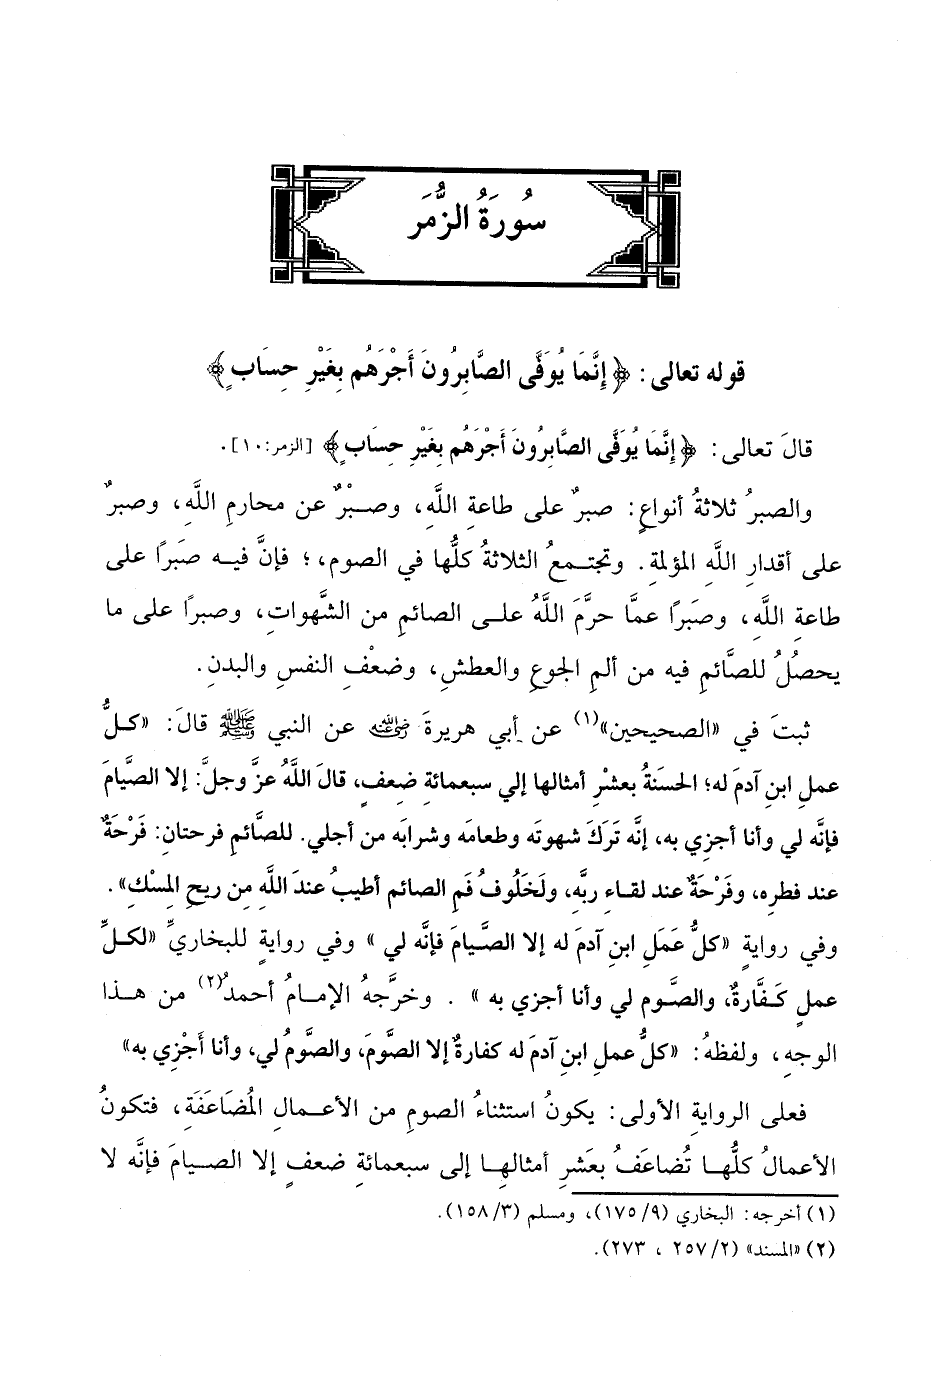 سُورَةُ الزُّمَر
قوله تعالى: ﴿إِنَّمَا يُوَفَّى الصَّابِرُونَ أَجْرَهُم بِغَيْرِ حِسَابٍ﴾
قالَ تعالى: ﴿إِنَّمَا يُوَفَّى الصَّابِرُونَ أَجْرَهُم بِغَيْرِ حِسَابٍ﴾ [الزمر:١٠].
والصبرُ ثلاثةُ أنواعٍ: صبرٌ على طاعةِ اللَّهِ، وصبْرٌ عن محارمِ اللَّهِ، وصبرٌ
على أقدارِ اللَّهِ المؤلمةِ. وتجتمعُ الثلاثةُ كلُّها في الصومِ،؛ فإنَّ فيه صَبرًا على
طاعةِ اللَّهِ، وصَبرًا عمَّا حرَّمَ اللَّهُ على الصائمِ من الشَّهواتِ، وصبرًا على ما
يحصُلُ للصَّائمِ فيه من ألمِ الجوعِ والعطشِ، وضعْفِ النفسِ والبدنِ.
ثبتَ في «الصحيحين»(١) عن أبي هريرةَ رضي الله عنه عن النبي ﷺ قالَ: «كلُّ
عملِ ابنِ آدمَ له؛ الحسَنةُ بعشْرِ أمثالها إلي سبعمائةِ ضعفٍ، قالَ اللَّهُ عزَّ وجلَّ: إلا الصَّيامَ
فإنَّه لي وأنا أجزي به، إنَّه تَرَكَ شهوتَه وطعامَه وشرابَه من أجلي. للصَّائمِ فرحتان: فَرْحَةٌ
عند فطرِه، وفَرْحَةٌ عند لقاءِ ربِّه، ولَخَلُوفُ فَمِ الصائم أطيبُ عندَ اللَّهِ مِن ريحِ المِسْكِ».
وفي روايةٍ «كلُّ عَمَلِ ابنِ آدمَ له إلا الصَّيامَ فإنَّه لي » وفي روايةٍ للبخاريِّ «لكلِّ
عملٍ كَفَّارةٌ، والصَّوم لي وأنا أجزي به » . وخرَّجهُ الإمامُ أحمدُ(٢) من هذا
الوجهِ، ولفظهُ: «كلُّ عملِ ابنِ آدمَ له كفارةٌ إلا الصَّومَ، والصَّومُ لي، وأنا أَجْزي به»
فعلى الروايةِ الأولى: يكونُ استثناءُ الصومِ من الأعمالِ المُضَاعَفَةِ، فتكونُ
الأعمالُ كلُّها تُضاعَفُ بعَشرِ أمثالهِا إلى سبعمائةِ ضعفٍ إلا الصيامَ فإنَّه لا
(١) أخرجه: البخاري (٩/ ١٧٥)، ومسلم (٣/ ١٥٨).
(٢) «المسند» (٢/ ٢٥٧ ، ٢٧٣).